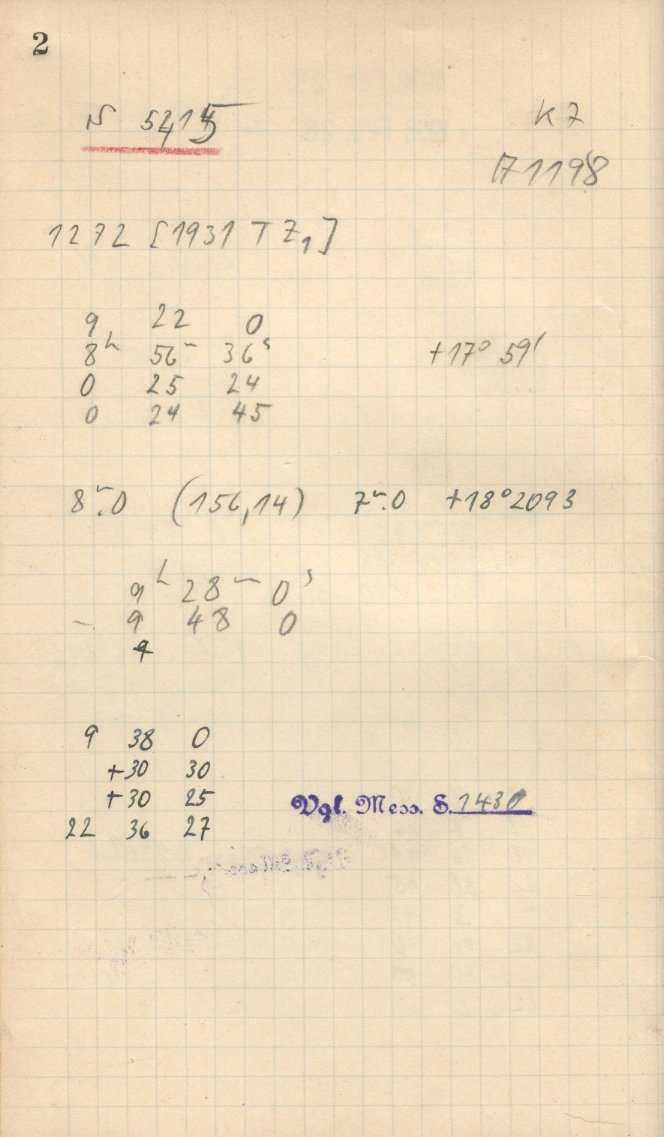 2
N 5415
K 7
171198
1272 [1931 T Z₁]
9 22 0
8ʰ 56ᵐ 36ˢ +17° 59'
0 25 24
0 24 45
8ᵐ.0 (156,14) 7ᵐ.0 +18°2093
9ʰ 28ᵐ 0ˢ
– 9 48 0
9 38 0
+30 30
+30 25
22 36 27
Vgl. Mess. S. 1430